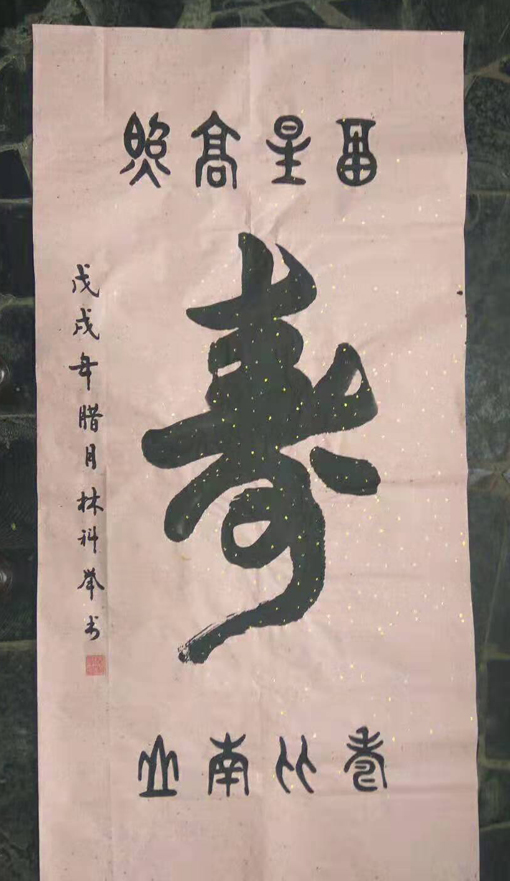 福星高照
寿
寿比南山
戊戌年腊月林科举书